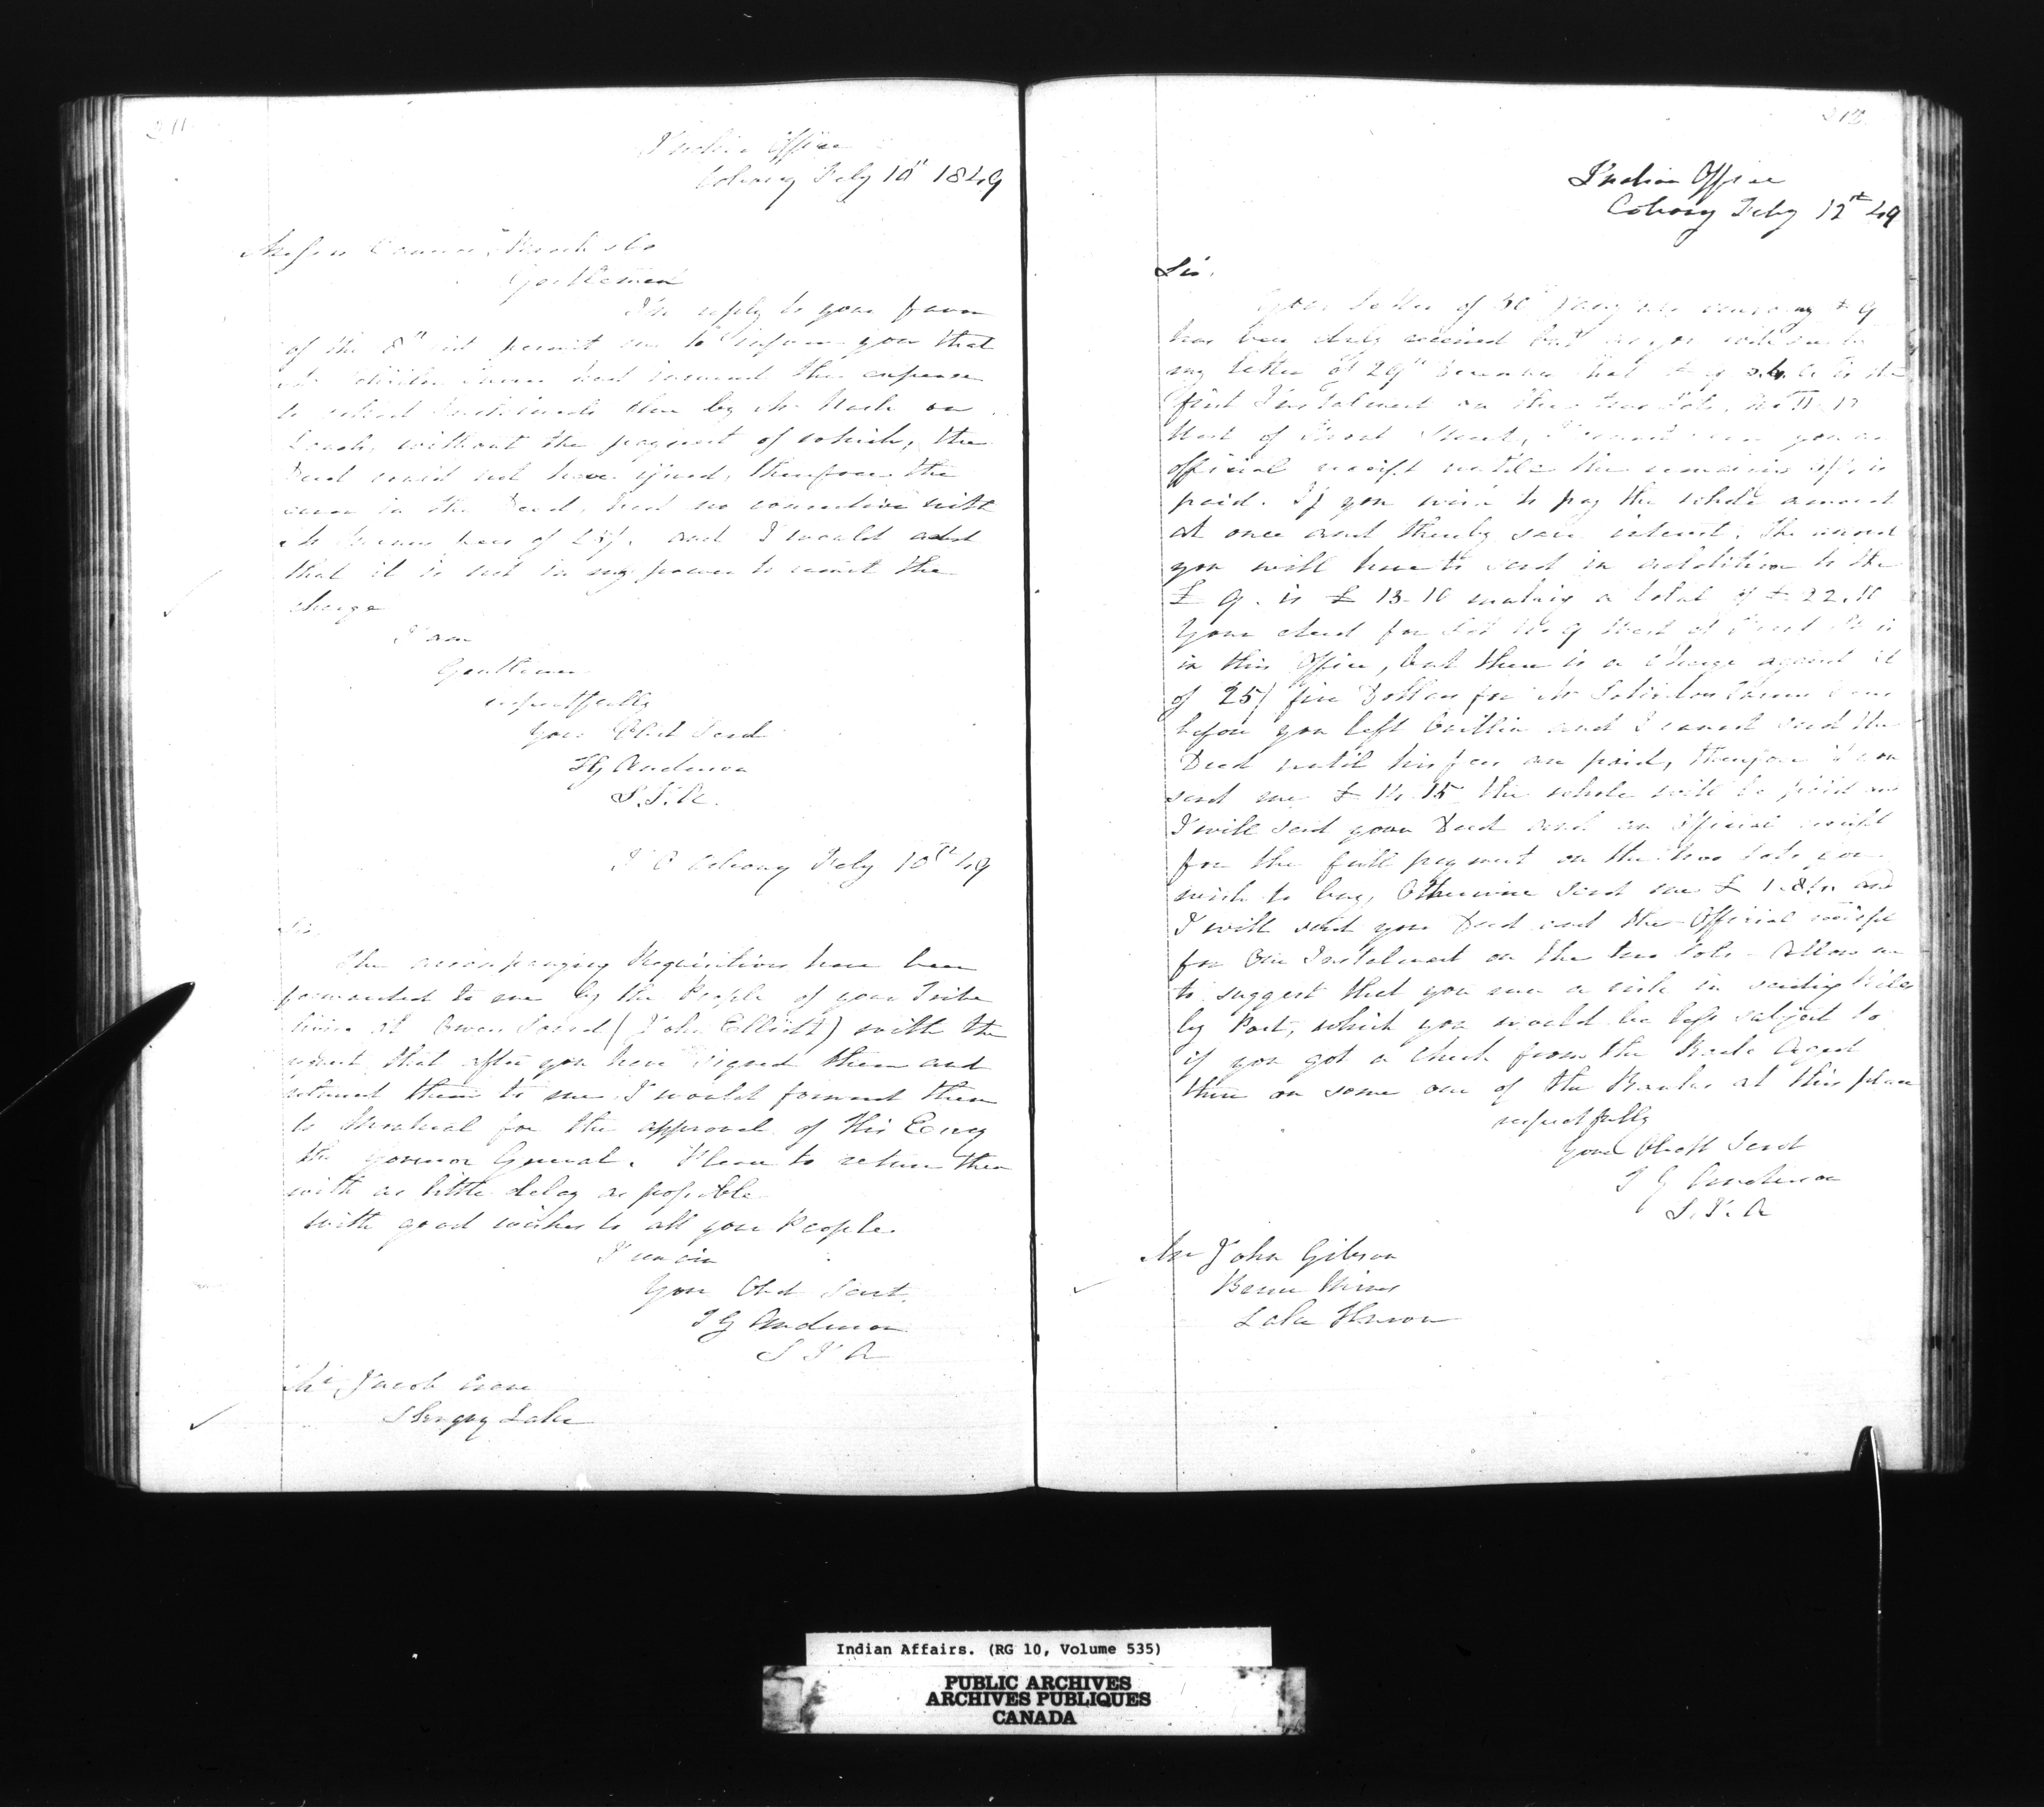 211
Indian Office
Cobourg Feby 10th 1849
Gentlemen
In reply to your favor
of the 8th permit me to inform you that
had incurred the expense
by Mr
without the payment of which, the
Deed could not have issued, therefore the
error in the Deed, had no connection with
of 25/. and I would add
that it is not in my power to remit the
charge
I am
Gentlemen
respectfully
Your Obdt Servt
T G Anderson
S.I.A.
I O Cobourg Feby 10th 49
Sir,
The accompanying Requisitions have been
forwarded to me by the People of your Tribe
living at Owen Sound (John Elliott) with the
request that after you have signed them and
returned them to me I would forward them
to Montreal for the approval of His Exncy
the Governor General. Please to return them
with as little delay as possible
With good wishes to all your People.
I remain
Your Obd Servt.
T G Anderson
S I A
Mr Jacob Crane
Skugog Lake
212
Indian Office
Cobourg Feby 12th 49
Sir,
Your letter of 30th Jany £ 9
has been duly received but as you will see by
my letter of 29th December that £ 9 is the
first Instalment on these two Lots, No 11. 12
West of Street, I cannot you an
official receipt until the remaining is
paid. If you wish to pay the whole amount
at once and thereby save interest, the amount
you will have to send in addition to the
£ 9. is £ 13-10 making a total of £ 22.10
Your deed for Lot No 9 West of St is
in this Office, but there is a charge against it
of 25/ five Dollars for Mr Solicitor
before you left and I cannot send the
Deed until his fees are paid, therefore if you
send me £ 14.15 the whole will be paid and
I will send your Deed and an Official receipt
for the full payment on the two Lots you
wish to buy, Otherwise send me £ 1. and
I will send you Deed and the Official receipt
for One Instalment on the two Lots - Allow me
to suggest that you run a risk in sending Bills
by Post, which you would be less subject to
if you got a check from the Bank Agent
there on some one of the Banks at this place
respectfully
Your Obedt Servt
T G Anderson
S.I.A
Mr John Gibson
Bruce Mines
Lake Huron
Indian Affairs. (RG 10, Volume 535)
PUBLIC ARCHIVES
ARCHIVES PUBLIQUES
CANADA